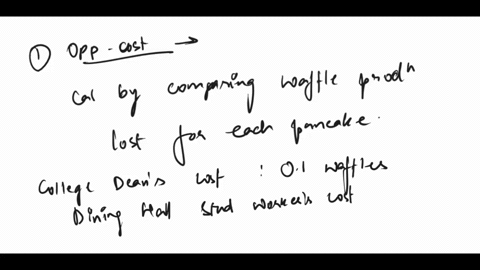 ① Opp-cost →
Cal by comparing waffle prodn
lost for each pancake.
College Dean's cost : 0.1 waffles
Dining Hall Stud worker's cost